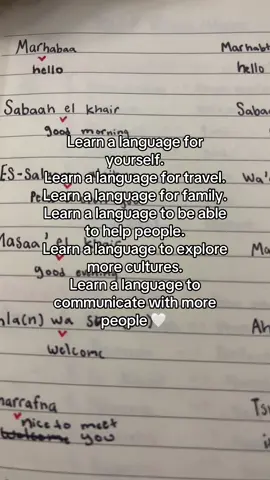 Marhabaa
Marhab
hello
hello
Sabaah el khair
Sabaa
good morning
Learn a language for
yourself.
Learn a language for travel.
Learn a language for family.
Learn a language to be able
to help people.
Learn a language to explore
more cultures.
Learn a language to
communicate with more
people🤍
ES-Sal
Wa'
Masaa' el khair
good evening
hla(n) wa s
Ah
welcome
harrafna
nice to meet
welcome you